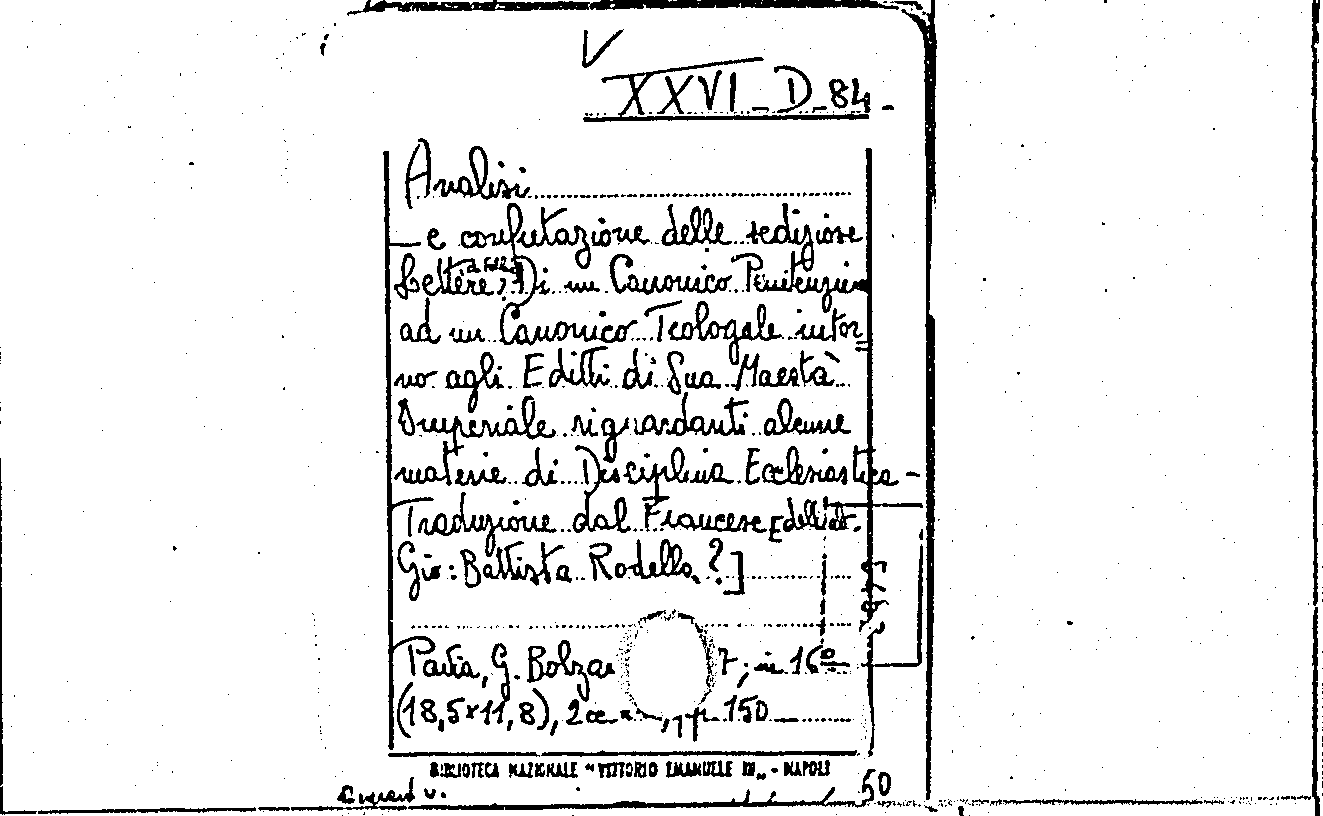 V
XXVI - D - 84 -
Analisi
e confutazione delle sediziose
Lettere: Di un Canonico Penitenzier
ad un Canonico Teologale intor=
no agli Editti di Sua Maestà
Imperiale riguardanti alcune
materie di Disciplina Ecclesiastica -
Traduzione dal Francese [dell'ab.
Gio: Battista Rodella?]
Pavia, G. Bolzan 7; in 16º
(18,5x11,8), 2 pp. 150
BIBLIOTECA NAZIONALE "VITTORIO EMANUELE III„ - NAPOLI
50